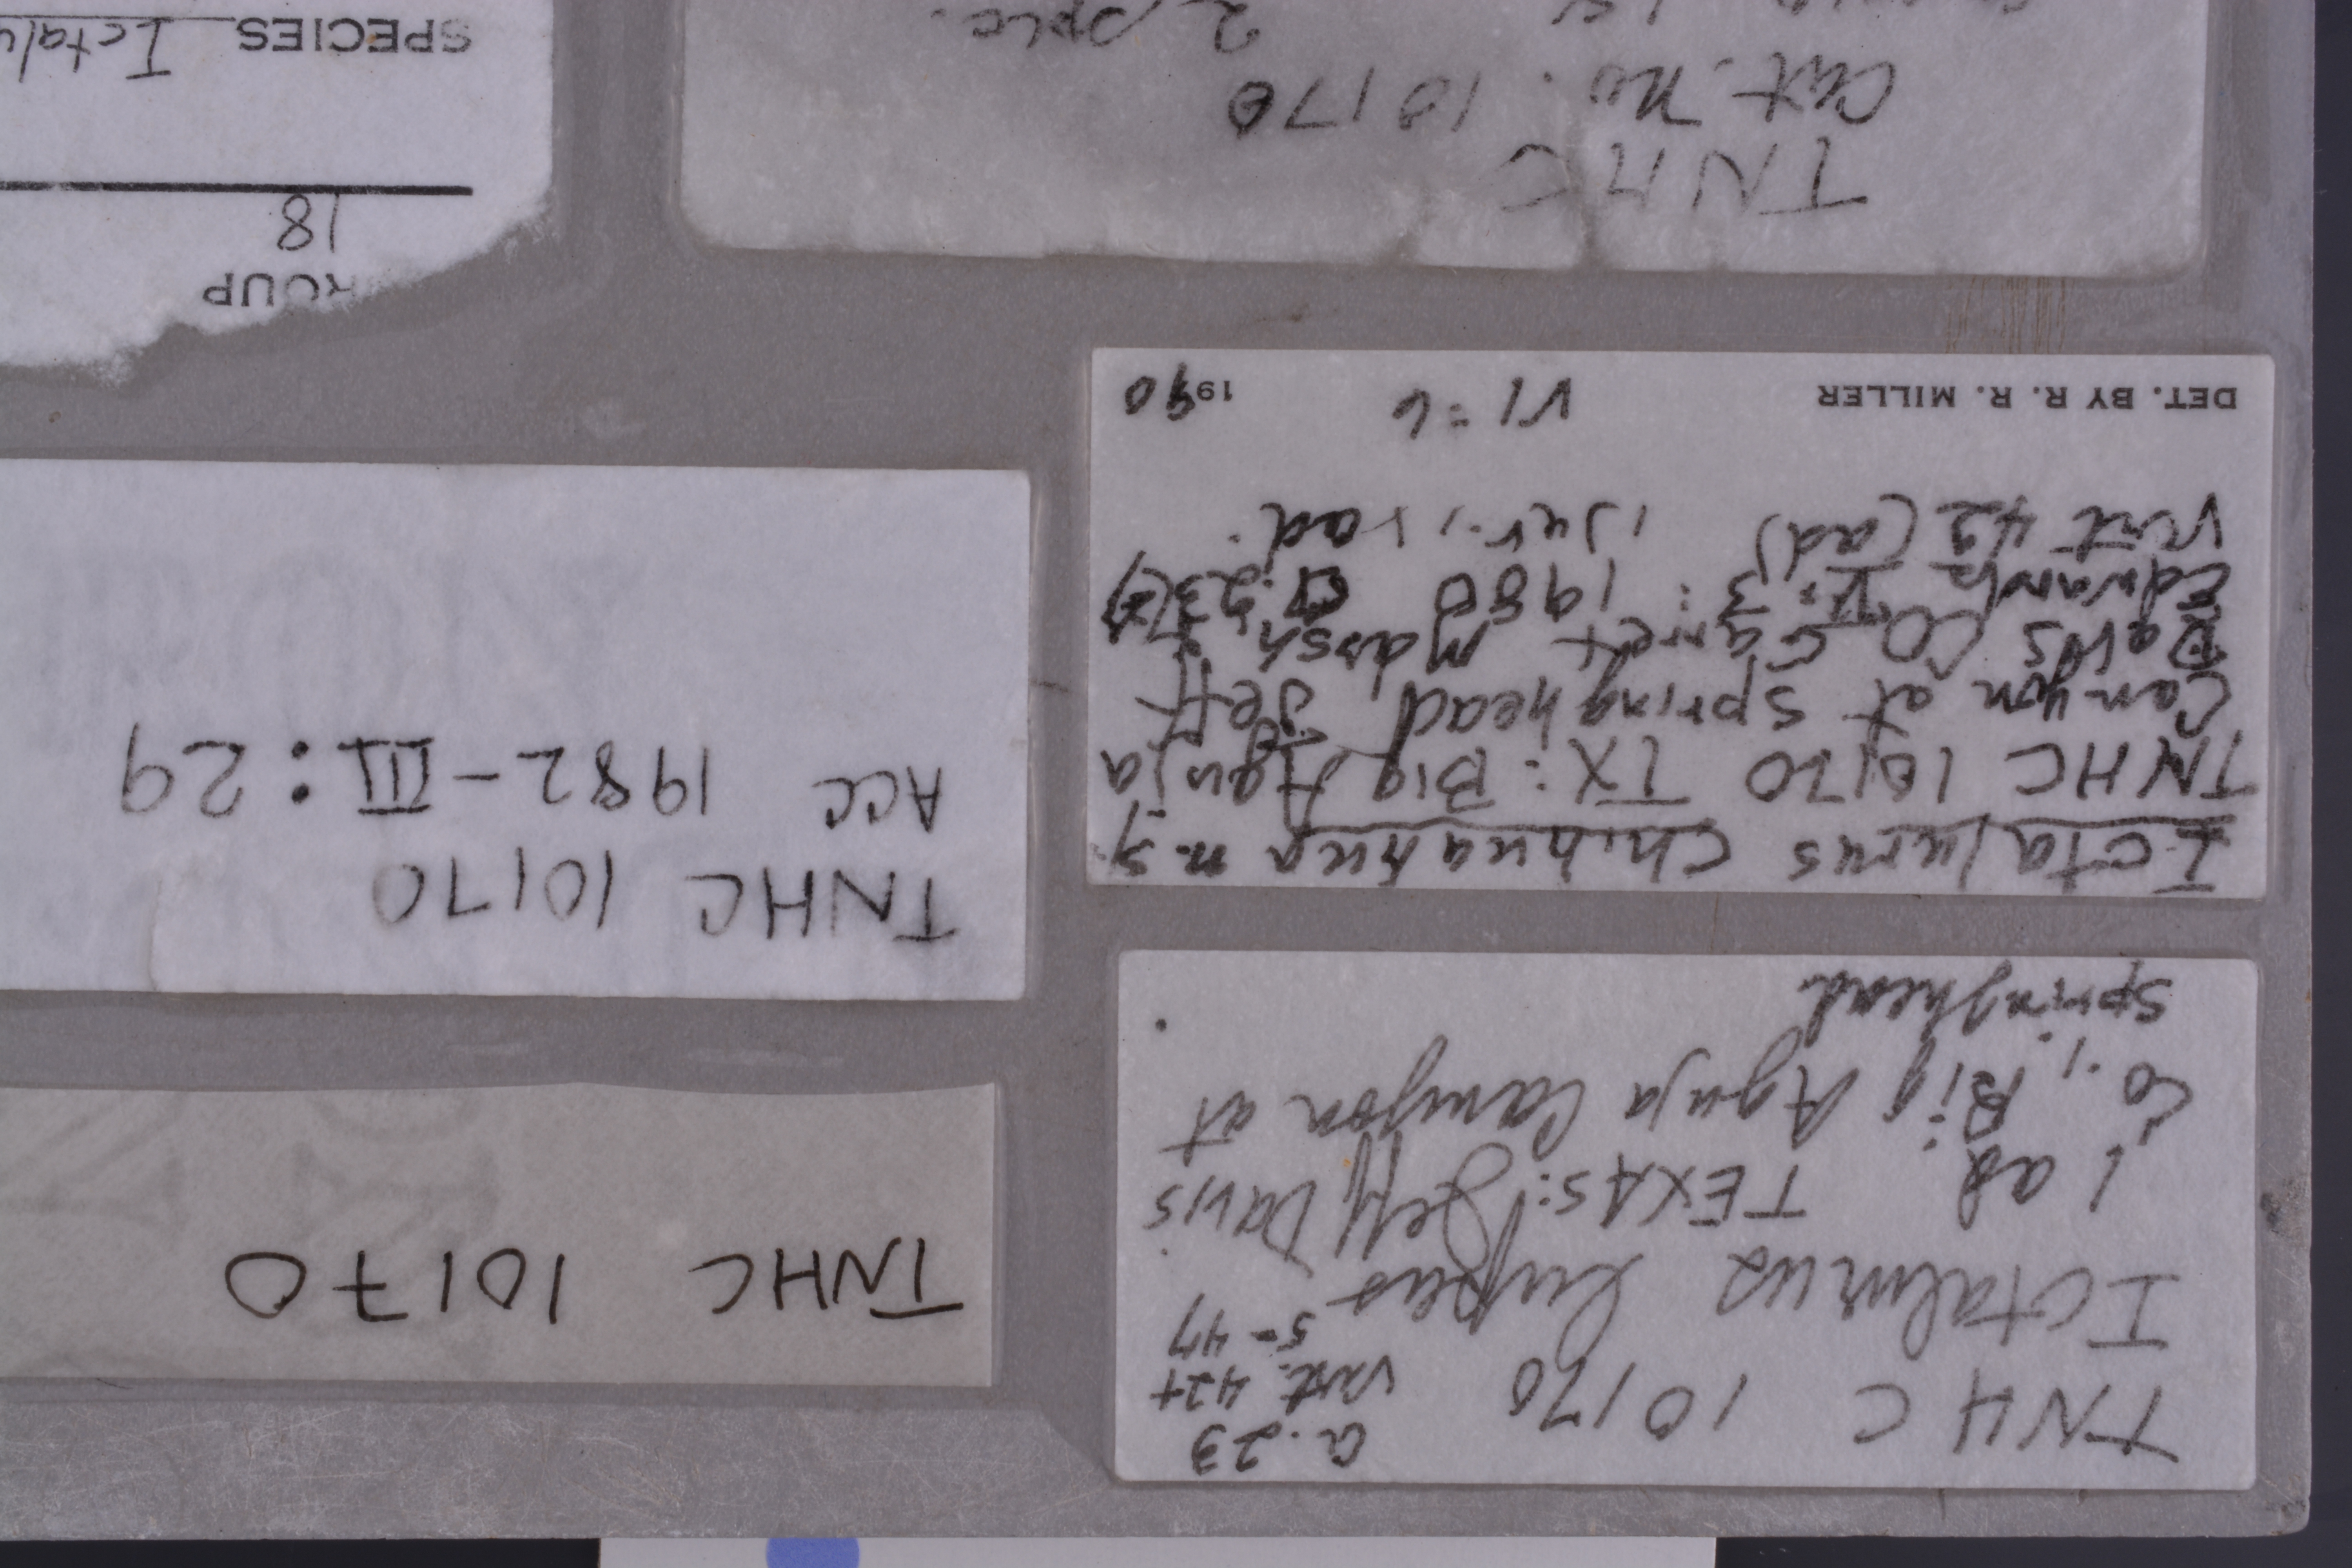 TNHC 10170 a. 23
vert. 42+
5=47
Ictalurus lupus
1 ad TEXAS: Jeff Davis
Co., Big Aguja Canyon at
springhead
TNHC 10170
Ictalurus chihuahua n. sp.
TNHC 10170 TX: Big Aguja
Canyon at springhead, Jeff
Davis CO Garret Marsh,
Edwards V:3: 1980 a. 23(2)
Vert 42 (ad) 1 juv., 1 ad.
DET. BY R. R. MILLER VI=6 1990
TNHC 10170
ACC 1982-III:29
TNHC
Cat. No. 10170
2
ROUP
18
SPECIES Ictalu